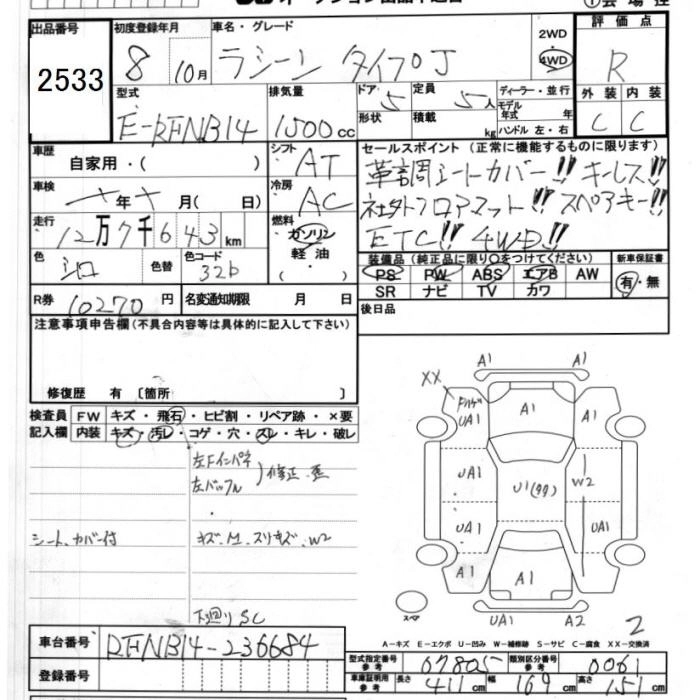 出品番号
2533
初度登録年月
8 10月
車名・グレード
ラシーン タイプJ
2WD
4WD
評価点
R
外装 内装
C C
型式
E-RFNB14
排気量
1500cc
ドア 5
形状
定員 5人
積載 kg
ディーラー・並行
モデル年式 年
ハンドル 左・右
車歴
自家用・( )
シフト
AT
車検
年 月( 日)
冷房
AC
走行
12万7千643km
燃料
ガソリン
軽油
・
色
シロ
色替
色コード
326
R券
10270円
名変通知期限 月 日
セールスポイント(正常に機能するものに限ります)
革調シートカバー!! キーレス!!
社外フロアマット!! スペアキー!!
ETC!! 4WD!!
装備品(純正品に限り○をつけてください)
PS PW ABS エアB AW
SR ナビ TV カワ
新車保証書
有・無
後日品
注意事項申告欄(不具合内容等は具体的に記入して下さい)
修復歴 有〔箇所 〕
検査員記入欄
FW キズ・飛石・ヒビ割・リペア跡・×要
内装 キズ・汚レ・コゲ・穴・スレ・キレ・破レ
左Fインパネ
左バッフル
修正・歪
シート、カバー付
キズ、M、スリキズ、W2
下廻りSC
A1 A2
XX
Fハゲ
UA1
A1
UA1
UA1
UA1
U1(タタ)
W2
UA1
A1
A1
A1
スペア
UA1 A2
2
A-キズ E-エクボ U-凹み W-補修跡 S-サビ C-腐食 XX-交換済
車台番号
RFNB14-236684
登録番号
型式指定番号 参考
07805
類別区分番号 参考
0061
車庫証明用 参考
長さ 411cm 幅 169cm 高さ 151cm